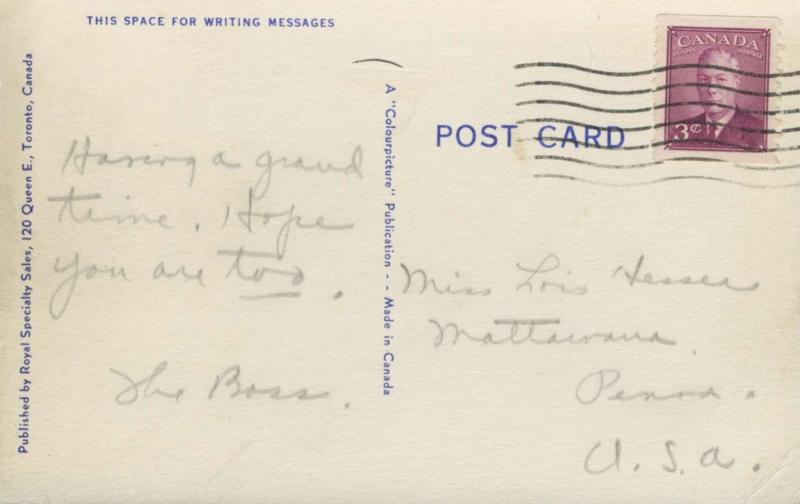 THIS SPACE FOR WRITING MESSAGES
Published by Royal Specialty Sales, 120 Queen E., Toronto, Canada
Having a grand
time. Hope
you are too.
The Boss.
A "Colourpicture" Publication - - Made in Canada
CANADA
POSTES POSTAGE
3¢
POST CARD
Miss Lois
Mattawana
Penna.
U.S.A.